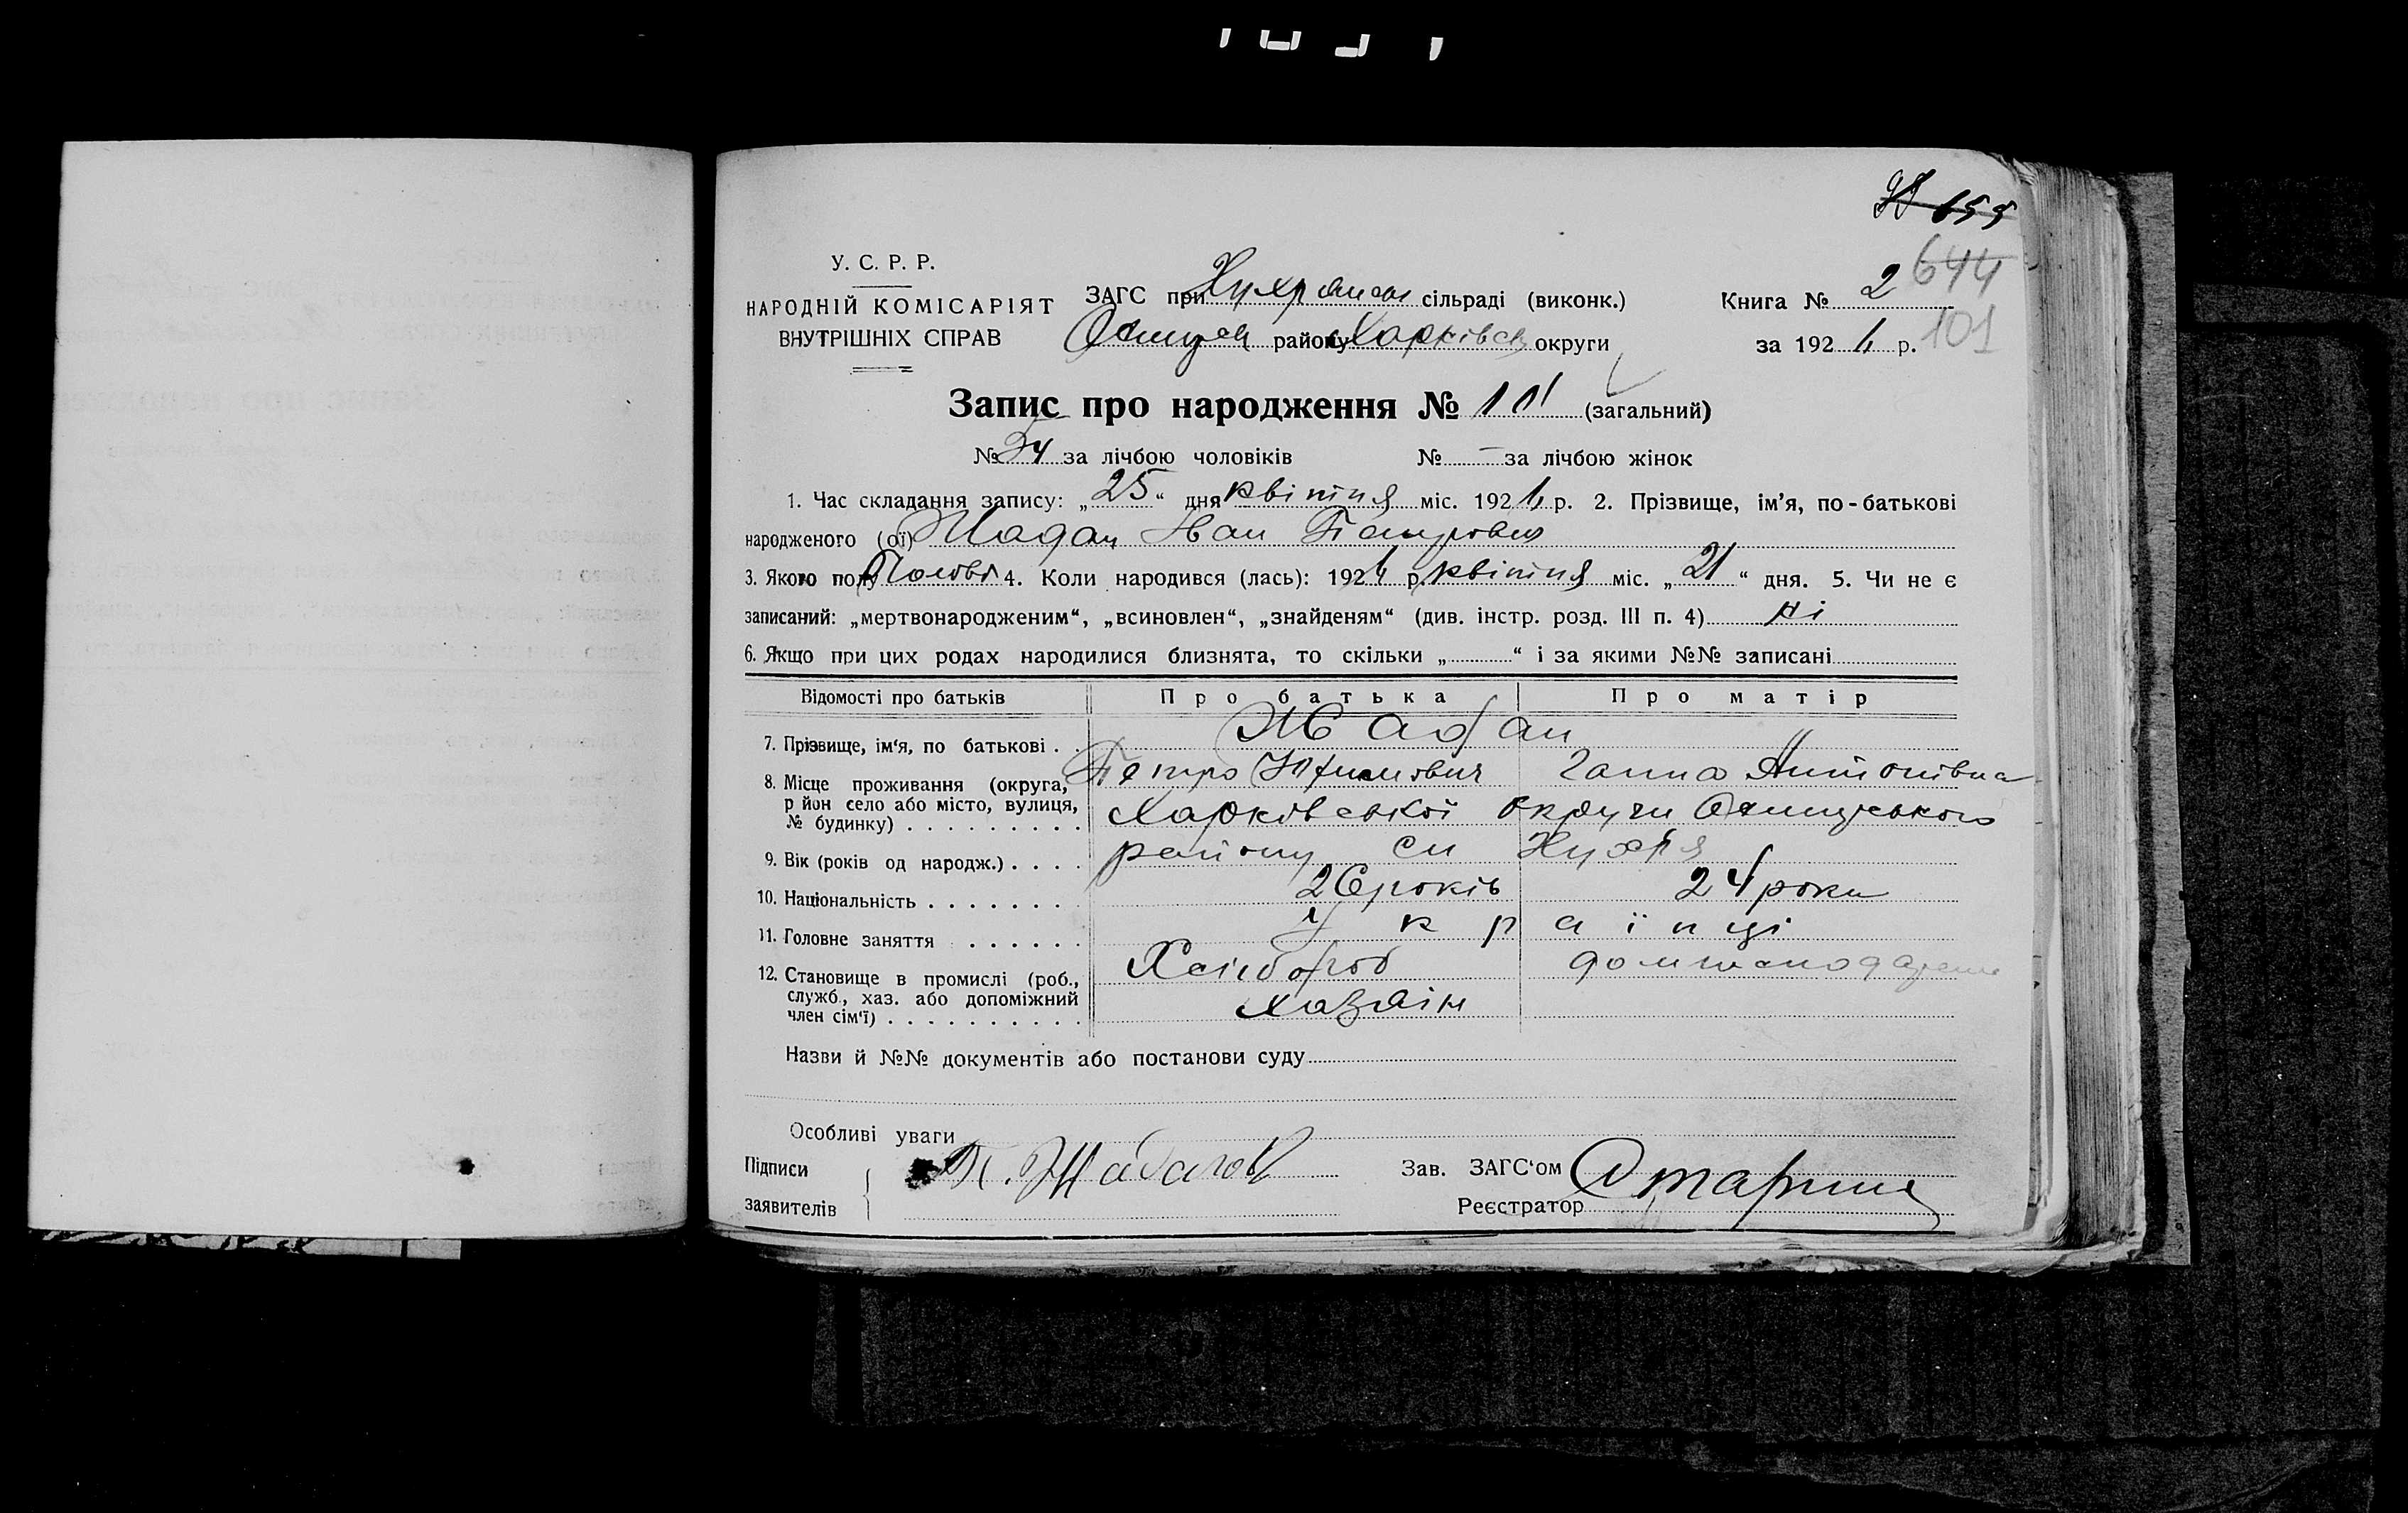 655
644
У. С. Р. Р.
НАРОДНІЙ КОМІСАРІЯТ
ВНУТРІШНІХ СПРАВ
ЗАГС при сільраді (виконк.)
району Харківськ округи
Книга № 2
за 192 р. 101
Запис про народження № 101 (загальний)
№ 54 за лічбою чоловіків № – за лічбою жінок
1. Час складання запису: „25“ дня квітня міс. 192 р. 2. Прізвище, ім’я, по-батькові
народженого (ої) Жадан Іван Петрович
3. Якого полу Чолові 4. Коли народився (лась): 192 р. квітня міс. „21“ дня. 5. Чи не є
записаний: „мертвонародженим“, „всиновлен“, „знайденям“ (див. інстр. розд. III п. 4) ні
6. Якщо при цих родах народилися близнята, то скільки „ “ і за якими №№ записані
Відомості про батьків Про батька Про матір
7. Прізвище, ім‘я, по батькові . . Жадан
Петро Ганна Антонівна
8. Місце проживання (округа,
р йон село або місто, вулиця,
№ будинку) . . . . . . . . . Харківської округи
району
9. Вік (років од народж.) . . . . 26 років 24 роки
10. Національність . . . . . . . українці
11. Головне заняття . . . . . . Хлібороб
12. Становище в промислі (роб.,
служб., хаз. або допоміжний
член сім‘ї) . . . . . . . . . . хазяїн
Назви й №№ документів або постанови суду
Особливі уваги
Підписи
заявителів
П.
Зав. ЗАГС‘ом
Реєстратор